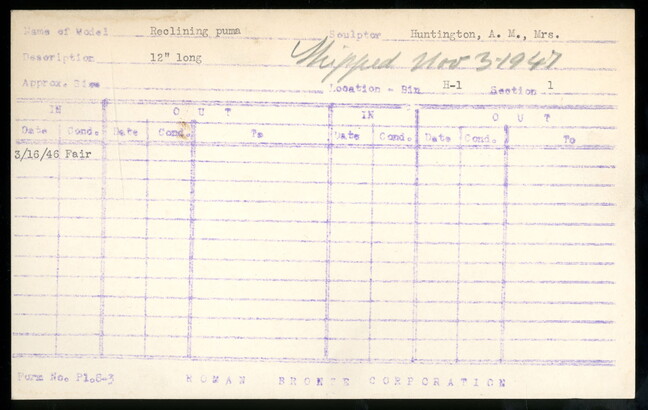 Name of Model Reclining puma Sculptor Huntington, A. M., Mrs.
Description 12" long Shipped Nov 3-1947
Approx. Size Location - Bin H-1 Section 1
IN OUT IN OUT
Date Cond. Date Cond. To Date Cond. Date Cond. To
3/16/46 Fair
Form No. P1.8-3 ROMAN BRONZE CORPORATION